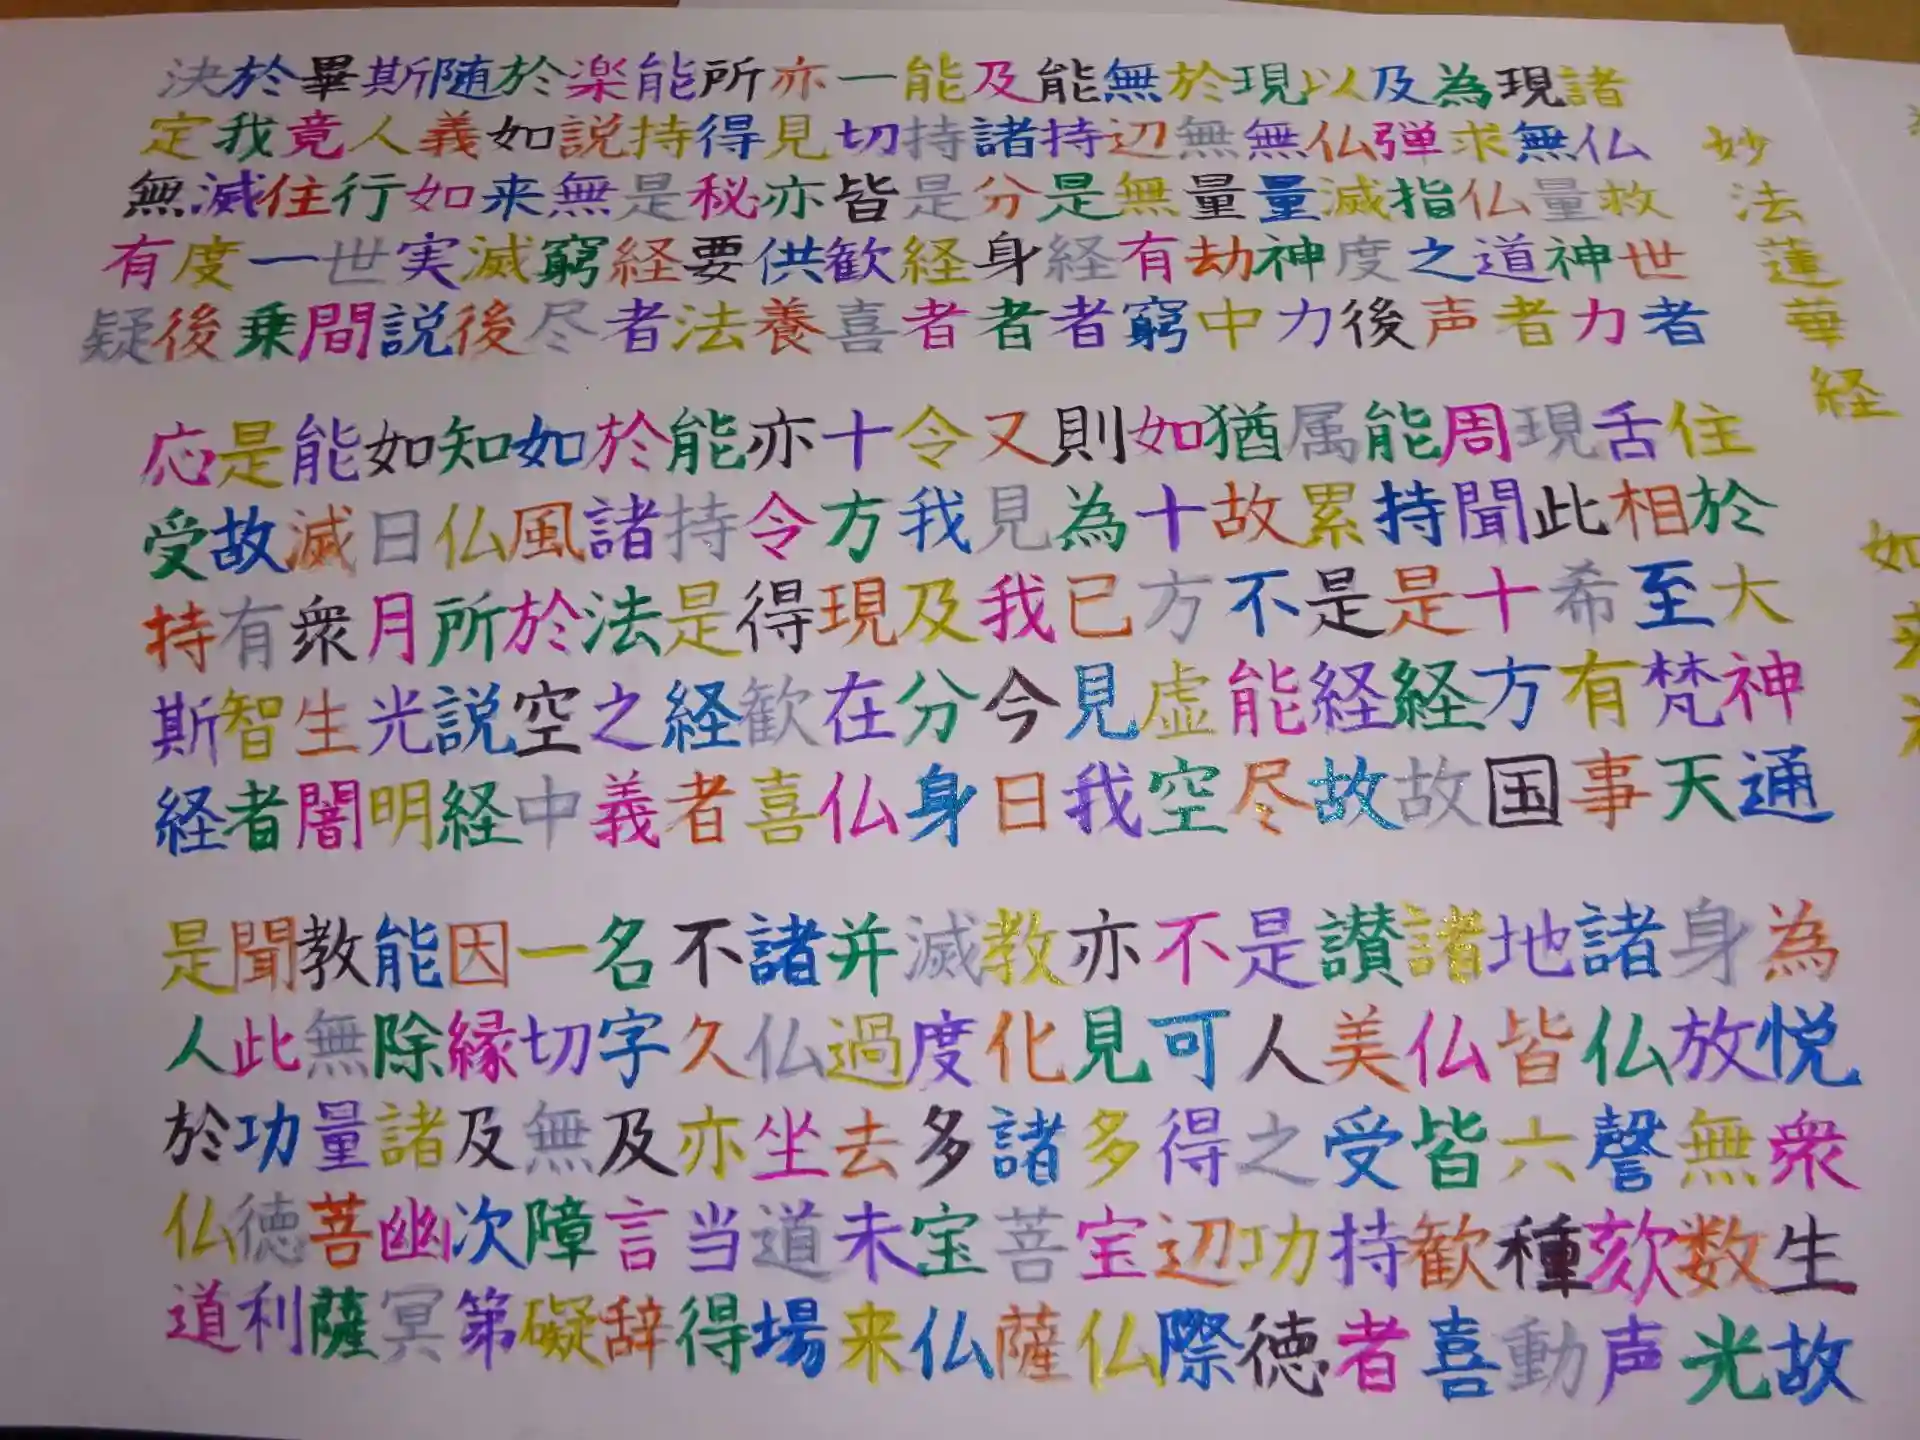 妙法蓮華経 如
諸仏救世者 住於大神通 為悦衆生故
現無量神力 舌相至梵天 身放無数光
為求仏道者 現此希有事 諸仏謦欬声
及弾指之声 周聞十方国 地皆六種動
以仏滅度後 能持是経故 諸仏皆歓喜
現無量神力 属累是経故 讃美受持者
於無量劫中 猶故不能尽 是人之功徳
無辺無有窮 如十方虚空 不可得辺際
能持是経者 則為已見我 亦見多宝仏
及諸分身者 又見我今日 教化諸菩薩
能持是経者 令我及分身 滅度多宝仏
一切皆歓喜 十方現在仏 并過去未来
亦見亦供養 亦令得歓喜 諸仏坐道場
所得秘要法 能持是経者 不久亦当得
能持是経者 於諸法之義 名字及言辞
楽説無窮尽 如風於空中 一切無障礙
於如来滅後 知仏所説経 因縁及次第
随義如実説 如日月光明 能除諸幽冥
斯人行世間 能滅衆生闇 教無量菩薩
畢竟住一乗 是故有智者 聞此功徳利
於我滅度後 応受持斯経 是人於仏道
決定無有疑